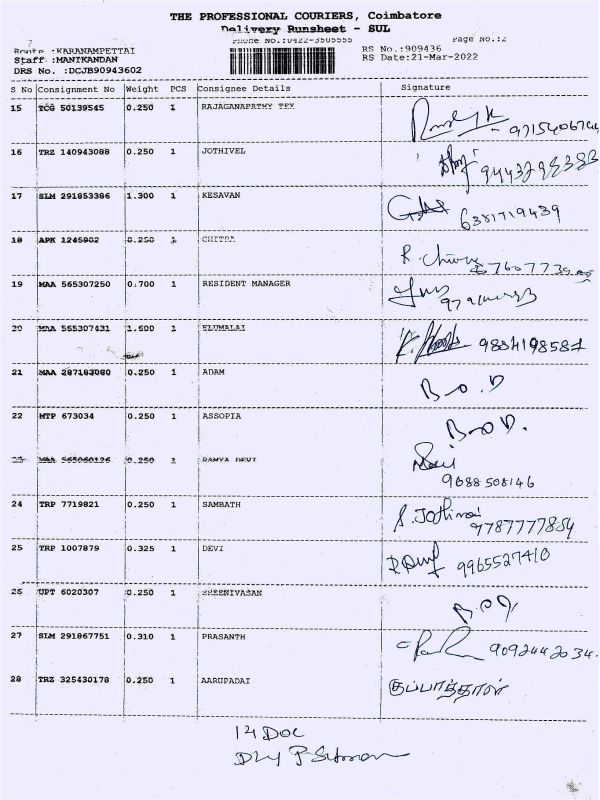 THE PROFESSIONAL COURIERS, Coimbatore
Delivery Runsheet - SUL
Phone No.:0422-3505555 Page No.:2
Route :KARANAMPETTAI RS No.:909436
Staff :MANIKANDAN RS Date:21-Mar-2022
DRS No. :DCJB90943602
S No Consignment No Weight PCS Consignee Details Signature
15 TCG 50139545 0.250 1 RAJAGANAPATHY TEX
16 TRZ 140943088 0.250 1 JOTHIVEL
17 SLM 291853386 1.300 1 KESAVAN 6381719439
18 APK 1245902 0.250 1 CHITRA
19 MAA 565307250 0.700 1 RESIDENT MANAGER
20 MAA 565307431 1.600 1 ELUMALAI 9884198587
21 MAA 287183080 0.250 1 ADAM
22 MTP 673034 0.250 1 ASSOPIA
23 MAA 565060126 0.250 1 RAMYA DEVI
9688508146
24 TRP 7719821 0.250 1 SAMBATH
9787777854
25 TRP 1007879 0.325 1 DEVI 9965527410
26 UPT 6020307 0.250 1 SREENIVASAN
27 SLM 291867751 0.310 1 PRASANTH 9092442034.
28 TRZ 325430178 0.250 1 AARUPADAI குப்பாத்தாள்
14 Doc